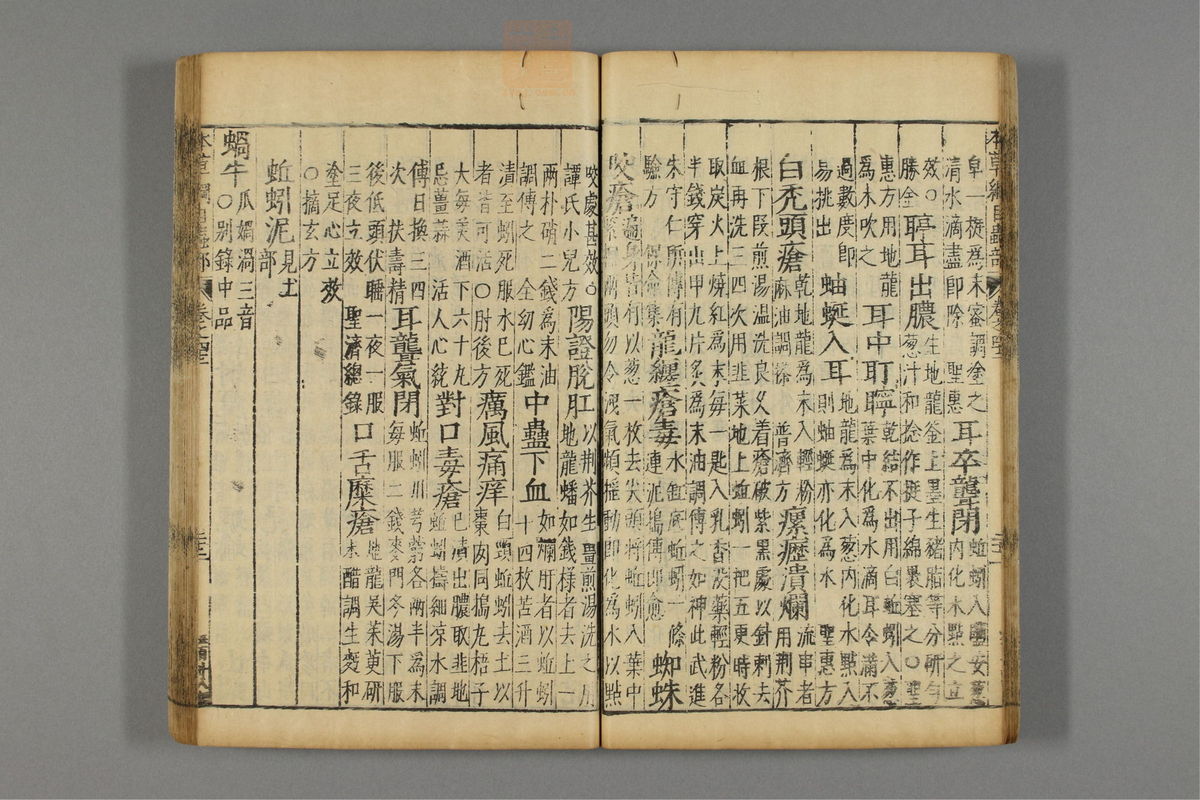 本草綱目蟲部
皁一挺為末蜜調塗之
清水滴盡即除 聖惠
耳卒聾閉
蚯蚓入鹽安葱
內化水點之立
效〇
勝金
聤耳出膿
生地龍釜上墨生豬脂等分研勻
葱汁和捻作挺子綿裹塞之〇聖
惠方用地龍
為末吹之
耳中耵聹
乾結不出用白蚯蚓入葱
葉中化為水滴耳令滿不
過數度即
易挑出
蚰蜒入耳
地龍為末入葱內化水點入
則蚰蜒亦化為水 聖惠方
白禿頭瘡
乾地龍為末入輕粉
麻油調搽 普濟方
瘰癧潰爛
流串者
用荆芥
根下段煎湯温洗良久着瘡破紫黑處以針刺去
血再洗三四次用韭菜地上蚯蚓一把五更時收
取炭火上燒紅為末每一匙入乳香沒藥輕粉各
半錢穿山甲九片炙為末油調傅之如神此武進
朱守仁所傳有
驗方 保命集
龍纏瘡毒
水缸底蚯蚓一條
連泥搗傅即愈
蜘蛛
咬瘡
遍身皆有以葱一枚去尖頭將蚯蚓入葉中
緊捏兩頭勿令洩氣頻搖動即化為水以點
咬處甚效〇
譚氏小兒方
陽證脫肛
以荆芥生薑煎湯洗之用
地龍蟠如錢樣者去上一
兩朴硝二錢為末油
調傅之 全幼心鑑
中蠱下血
如爛肝者以蚯蚓
十四枚苦酒三升
漬至蚓死服水巳死
者皆可活〇肘後方
癘風痛痒
白頸蚯蚓去土以
棗肉同搗丸梧子
大每美酒下六十丸
忌薑蒜 活人心統
對口毒瘡
巳潰出膿取韭地
蚯蚓擣細凉水調
傅日換三四
次 扶壽精
耳聾氣閉
蚯蚓川芎藭各兩半為末
每服二錢麥門冬湯下服
後低頭伏睡一夜一服
三夜立效 聖濟總錄
口舌糜瘡
地龍吳茱萸研
末醋調生麪和
塗足心立效
〇摘玄方
蚯蚓泥 見土
部
蝸牛
爪媧渦三音
〇別錄中品
本草綱目蟲部